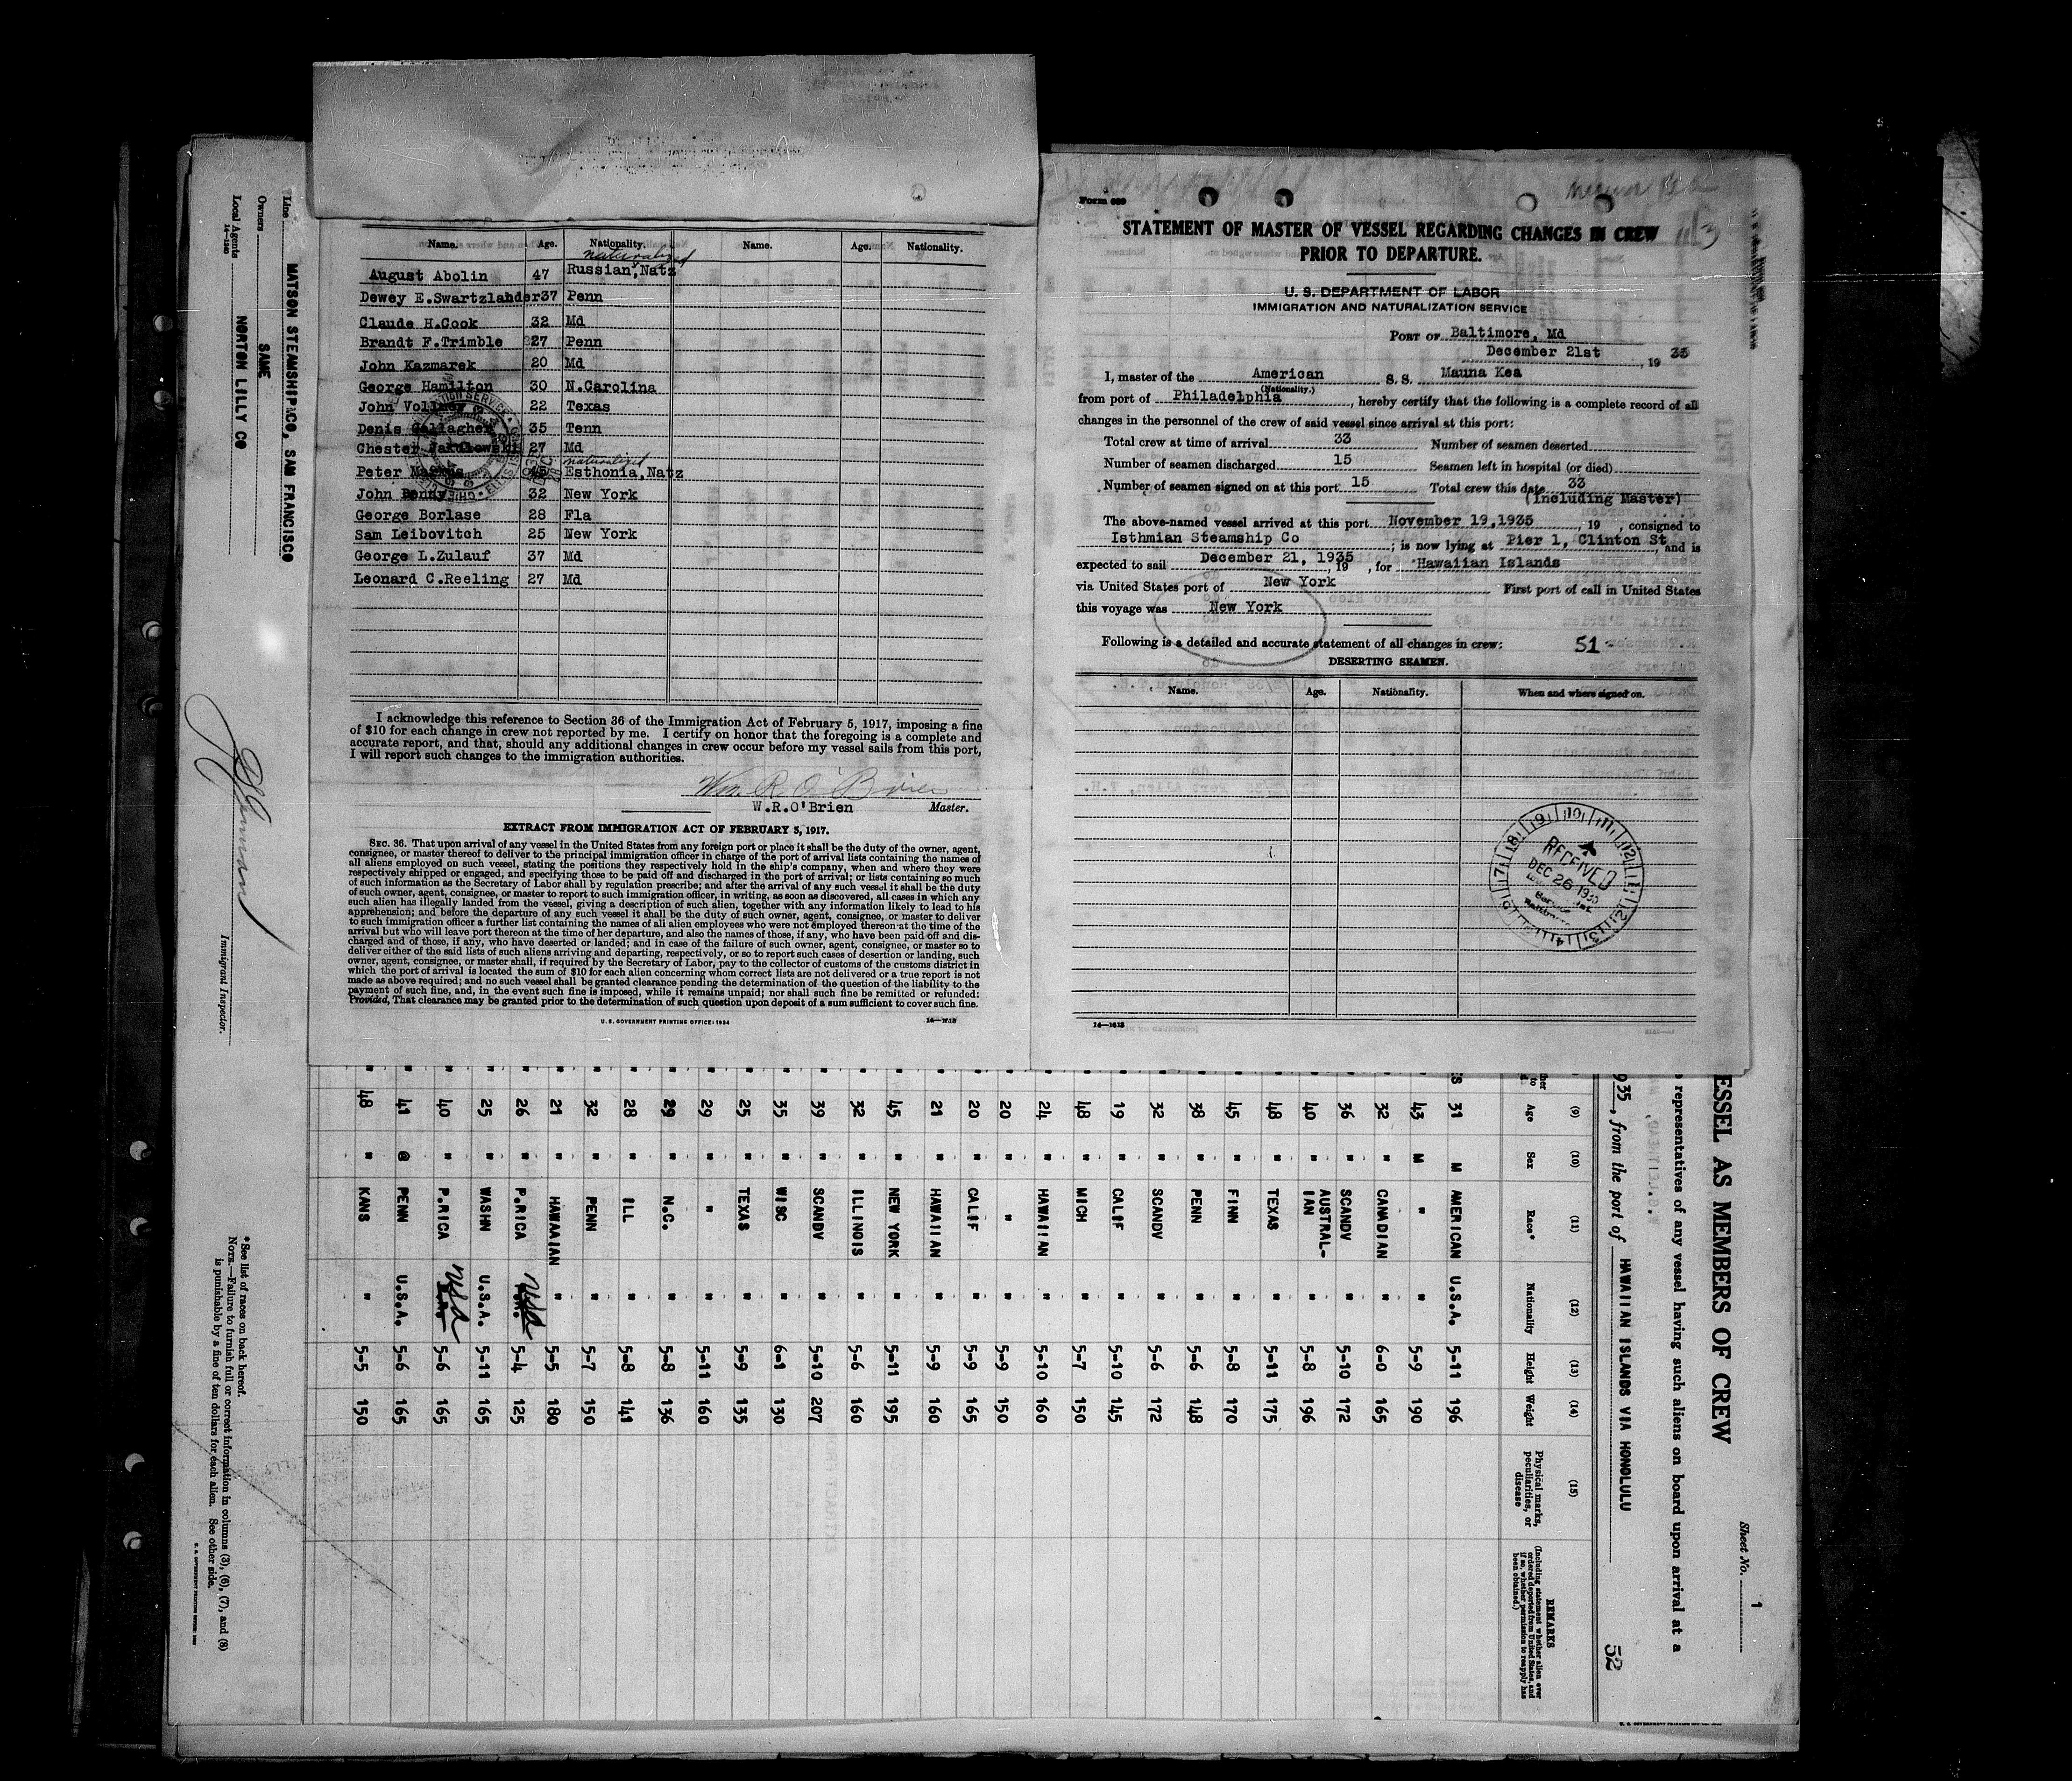 Name. Age. Nationality. Name. Age. Nationality.
naturalized
August Abolin 47 Russian, Natz
Dewey E.Swartzlander 37 Penn
Claude H.Cook 32 Md
Brandt F.Trimble 27 Penn
John Kazmarek 20 Md
George Hamilton 30 N.Carolina
John Vollmer 22 Texas
Denis Gallagher 35 Tenn
Chester 27 Md
naturalized
Peter Esthonia, Natz
John 32 New York
George Borlase 28 Fla
Sam Leibovitch 25 New York
George L.Zulauf 37 Md
Leonard C.Reeling 27 Md
I acknowledge this reference to Section 36 of the Immigration Act of February 5, 1917, imposing a fine
of $10 for each change in crew not reported by me. I certify on honor that the foregoing is a complete and
accurate report, and that, should any additional changes in crew occur before my vessel sails from this port,
I will report such changes to the immigration authorities.
Wm. R O'Brien
W.R.O'Brien Master.
EXTRACT FROM IMMIGRATION ACT OF FEBRUARY 5, 1917.
SEC. 36. That upon arrival of any vessel in the United States from any foreign port or place it shall be the duty of the owner, agent,
consignee, or master thereof to deliver to the principal immigration officer in charge of the port of arrival lists containing the names of
all aliens employed on such vessel, stating the positions they respectively hold in the ship's company, when and where they were
respectively shipped or engaged, and specifying those to be paid off and discharged in the port of arrival; or lists containing so much
of such information as the Secretary of Labor shall by regulation prescribe; and after the arrival of any such vessel it shall be the duty
of such owner, agent, consignee, or master to report to such immigration officer, in writing, as soon as discovered, all cases in which any
such alien has illegally landed from the vessel, giving a description of such alien, together with any information likely to lead to his
apprehension; and before the departure of any such vessel it shall be the duty of such owner, agent, consignee, or master to deliver
to such immigration officer a further list containing the names of all alien employees who were not employed thereon at the time of the
arrival but who will leave port thereon at the time of her departure, and also the names of those, if any, who have been paid off and dis-
charged and of those, if any, who have deserted or landed; and in case of the failure of such owner, agent, consignee, or master so to
deliver either of the said lists of such aliens arriving and departing, respectively, or so to report such cases of desertion or landing, such
owner, agent, consignee, or master shall, if required by the Secretary of Labor, pay to the collector of customs of the customs district in
which the port of arrival is located the sum of $10 for each alien concerning whom correct lists are not delivered or a true report is not
made as above required; and no such vessel shall be granted clearance pending the determination of the question of the liability to the
payment of such fine, and, in the event such fine is imposed, while it remains unpaid; nor shall such fine be remitted or refunded:
Provided, That clearance may be granted prior to the determination of such question upon deposit of a sum sufficient to cover such fine.
U. S. GOVERNMENT PRINTING OFFICE: 1934
Form 689
STATEMENT OF MASTER OF VESSEL REGARDING CHANGES IN CREW
PRIOR TO DEPARTURE.
U. S. DEPARTMENT OF LABOR
IMMIGRATION AND NATURALIZATION SERVICE
PORT OF Baltimore, Md
December 21st, 19 35
I, master of the American S. S. Mauna Kea
(Nationality.)
from port of Philadelphia, hereby certify that the following is a complete record of all
changes in the personnel of the crew of said vessel since arrival at this port:
Total crew at time of arrival 33 Number of seamen deserted
Number of seamen discharged 15 Seamen left in hospital (or died)
Number of seamen signed on at this port 15 Total crew this date 33
(Including Master)
The above-named vessel arrived at this port November 19,1935, 19 , consigned to
Isthmian Steamship Co; is now lying at Pier 1, Clinton St, and is
expected to sail December 21, 1935, 19 , for Hawaiian Islands
via United States port of New York First port of call in United States
this voyage was New York
Following is a detailed and accurate statement of all changes in crew: 51
DESERTING SEAMEN.
Name. Age. Nationality. When and where signed on.
RECEIVED
DEC 26 1935
14—1618
Line MATSON STEAMSHIP CO, SAN FRANCISCO
Owners SAME
Local Agents NORTON LILLY CO
14—1240
Immigrant Inspector.
*See list of races on back hereof.
NOTE.—Failure to furnish full or correct information in columns (3), (6), (7), and (8)
is punishable by a fine of ten dollars for each alien. See other side.
Sheet No. 1
ESSEL AS MEMBERS OF CREW
representatives of any vessel having such aliens on board upon arrival at a
935, from the port of HAWAIIAN ISLANDS VIA HONOLULU
52
(9) (10) (11) (12) (13) (14) (15)
Age Sex Race* Nationality Height Weight Physical marks, peculiarities, or disease REMARKS
(Including statement whether alien ever ordered deported from United States, and if so, whether permission to reapply has been obtained.)
31 M AMERICAN U.S.A. 5-11 196
43 M " " 5-9 190
32 " CANADIAN " 6-0 165
36 " SCANDV " 5-10 172
40 " AUSTRAL-IAN " 5-8 196
48 " TEXAS " 5-11 175
45 " FINN " 5-8 170
38 " PENN " 5-6 148
32 " SCANDV " 5-6 172
19 " CALIF " 5-10 145
48 " MICH " 5-7 150
24 " HAWAIIAN " 5-10 160
20 " " " 5-9 150
20 " CALIF " 5-9 165
21 " HAWAIIAN " 5-9 160
45 " NEW YORK " 5-11 195
32 " ILLINOIS " 5-6 160
39 " SCANDV " 5-10 207
35 " WISC " 6-1 130
25 " TEXAS " 5-9 135
29 " " " 5-11 160
29 " N.C. " 5-8 136
28 " ILL " 5-8 141
32 " PENN " 5-7 150
21 " HAWAIIAN " 5-5 180
26 " P.RICA USA 5-4 125
25 " WASHN U.S.A. 5-11 165
40 " P.RICA USA 5-6 165
41 @ PENN U.S.A. 5-6 165
48 " KANS " 5-5 150